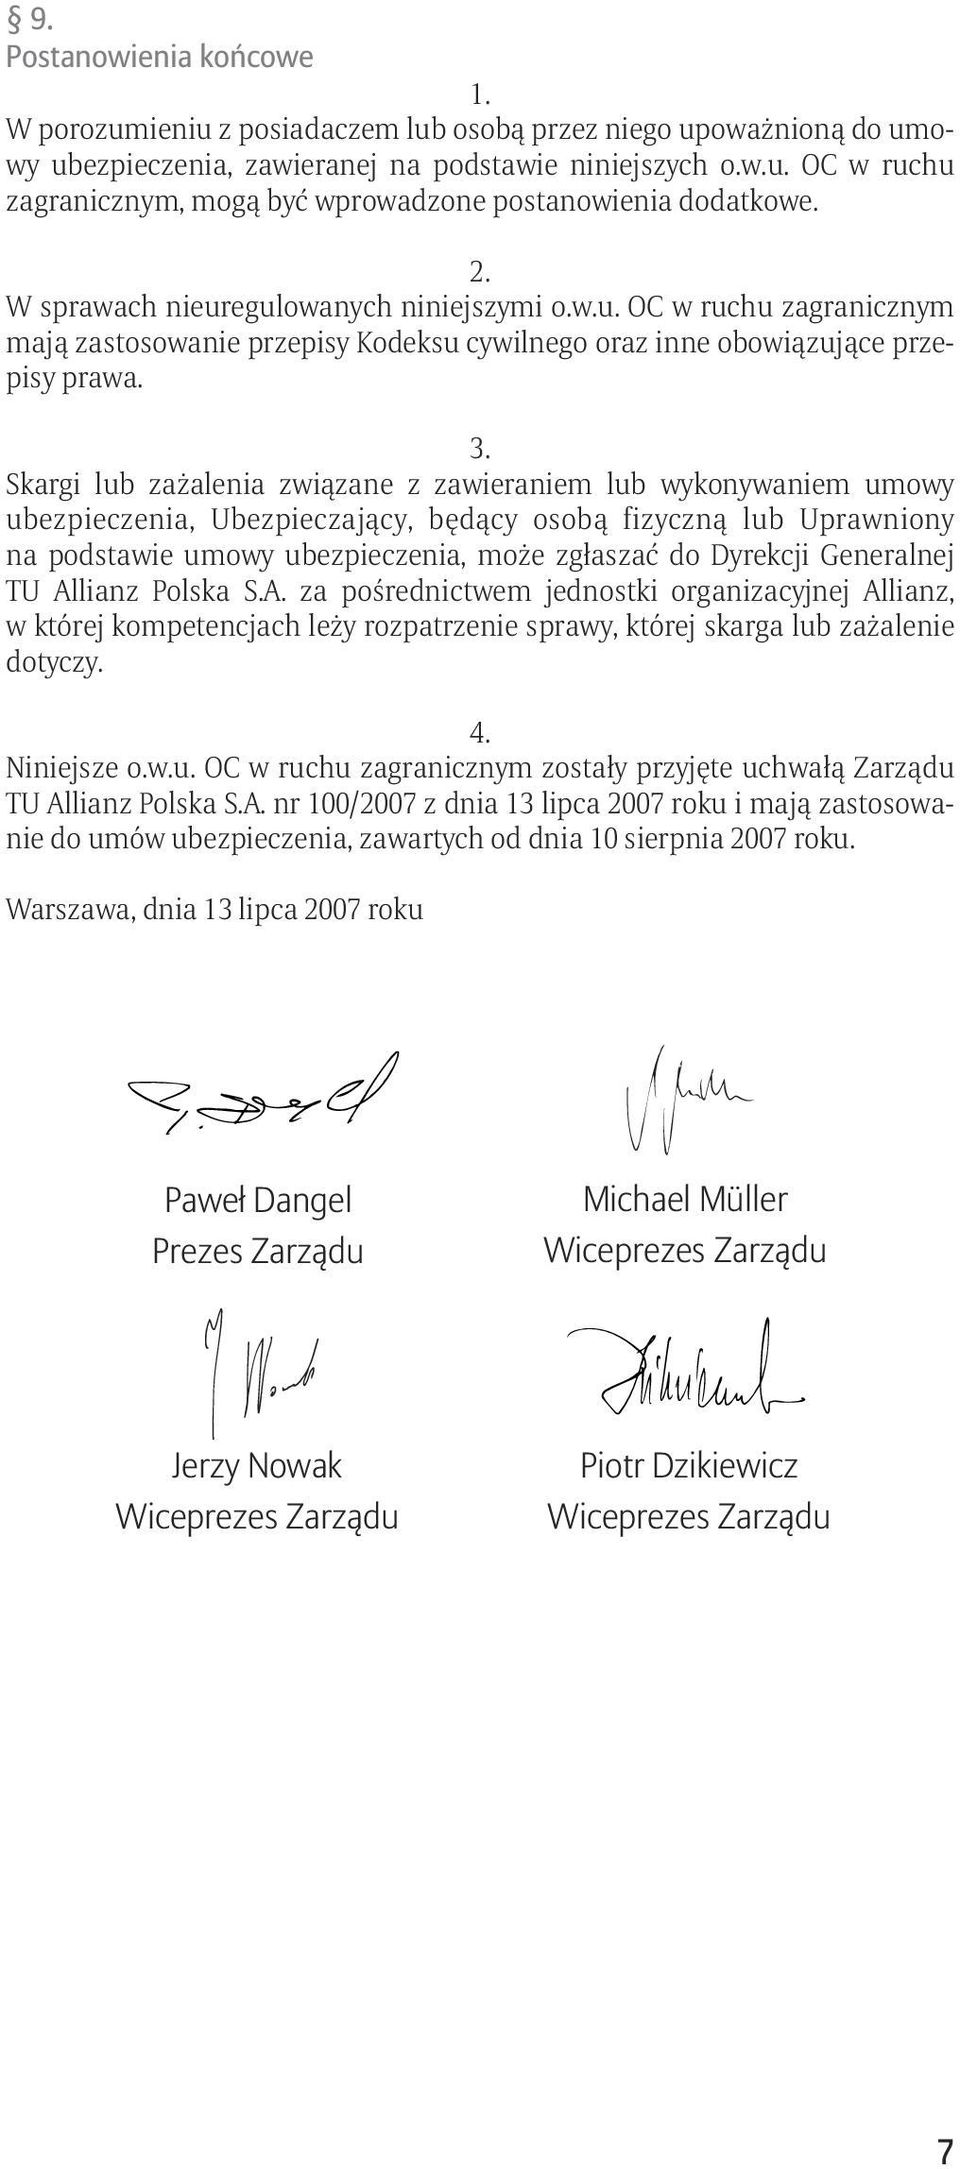 § 9.
Postanowienia końcowe
1.
W porozumieniu z posiadaczem lub osobą przez niego upoważnioną do umo-
wy ubezpieczenia, zawieranej na podstawie niniejszych o.w.u. OC w ruchu
zagranicznym, mogą być wprowadzone postanowienia dodatkowe.
2.
W sprawach nieuregulowanych niniejszymi o.w.u. OC w ruchu zagranicznym
mają zastosowanie przepisy Kodeksu cywilnego oraz inne obowiązujące prze-
pisy prawa.
3.
Skargi lub zażalenia związane z zawieraniem lub wykonywaniem umowy
ubezpieczenia, Ubezpieczający, będący osobą fizyczną lub Uprawniony
na podstawie umowy ubezpieczenia, może zgłaszać do Dyrekcji Generalnej
TU Allianz Polska S.A. za pośrednictwem jednostki organizacyjnej Allianz,
w której kompetencjach leży rozpatrzenie sprawy, której skarga lub zażalenie
dotyczy.
4.
Niniejsze o.w.u. OC w ruchu zagranicznym zostały przyjęte uchwałą Zarządu
TU Allianz Polska S.A. nr 100/2007 z dnia 13 lipca 2007 roku i mają zastosowa-
nie do umów ubezpieczenia, zawartych od dnia 10 sierpnia 2007 roku.
Warszawa, dnia 13 lipca 2007 roku
Paweł Dangel
Prezes Zarządu
Michael Müller
Wiceprezes Zarządu
Jerzy Nowak
Wiceprezes Zarządu
Piotr Dzikiewicz
Wiceprezes Zarządu
7